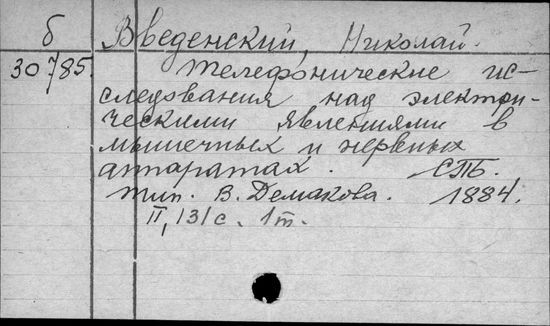 б Введенский, Николай.
30785. Телефонические ис-
следования над электри-
ческими явлениями в
мышечных и нервных
аппаратах. СПБ.
тип. В. Демакова. 1884.
II, 131 с. 1 т.